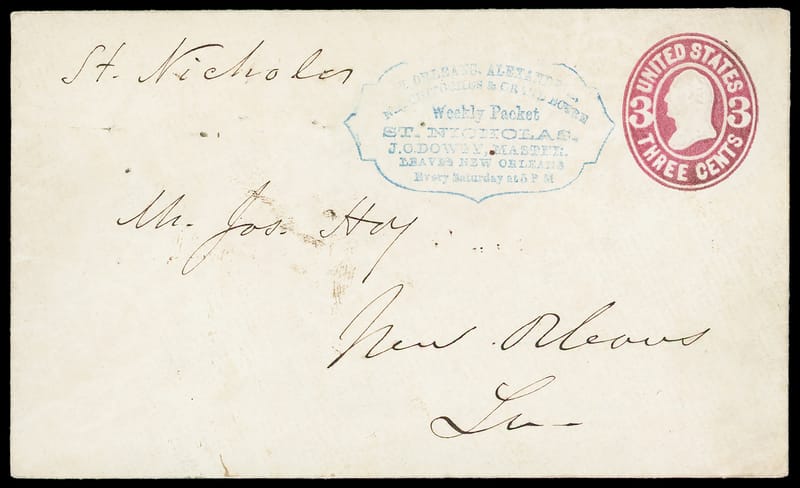 St. Nicholas
ORLEANS, ALEXANDRIA,
& GRAND ECORE
Weekly Packet
ST. NICHOLAS.
J.C. DOWTY, MASTER.
LEAVES NEW ORLEANS
Every Saturday at 5 P M
UNITED STATES
3 3
THREE CENTS
Mr. Jos. Hoy
New Orleans
La